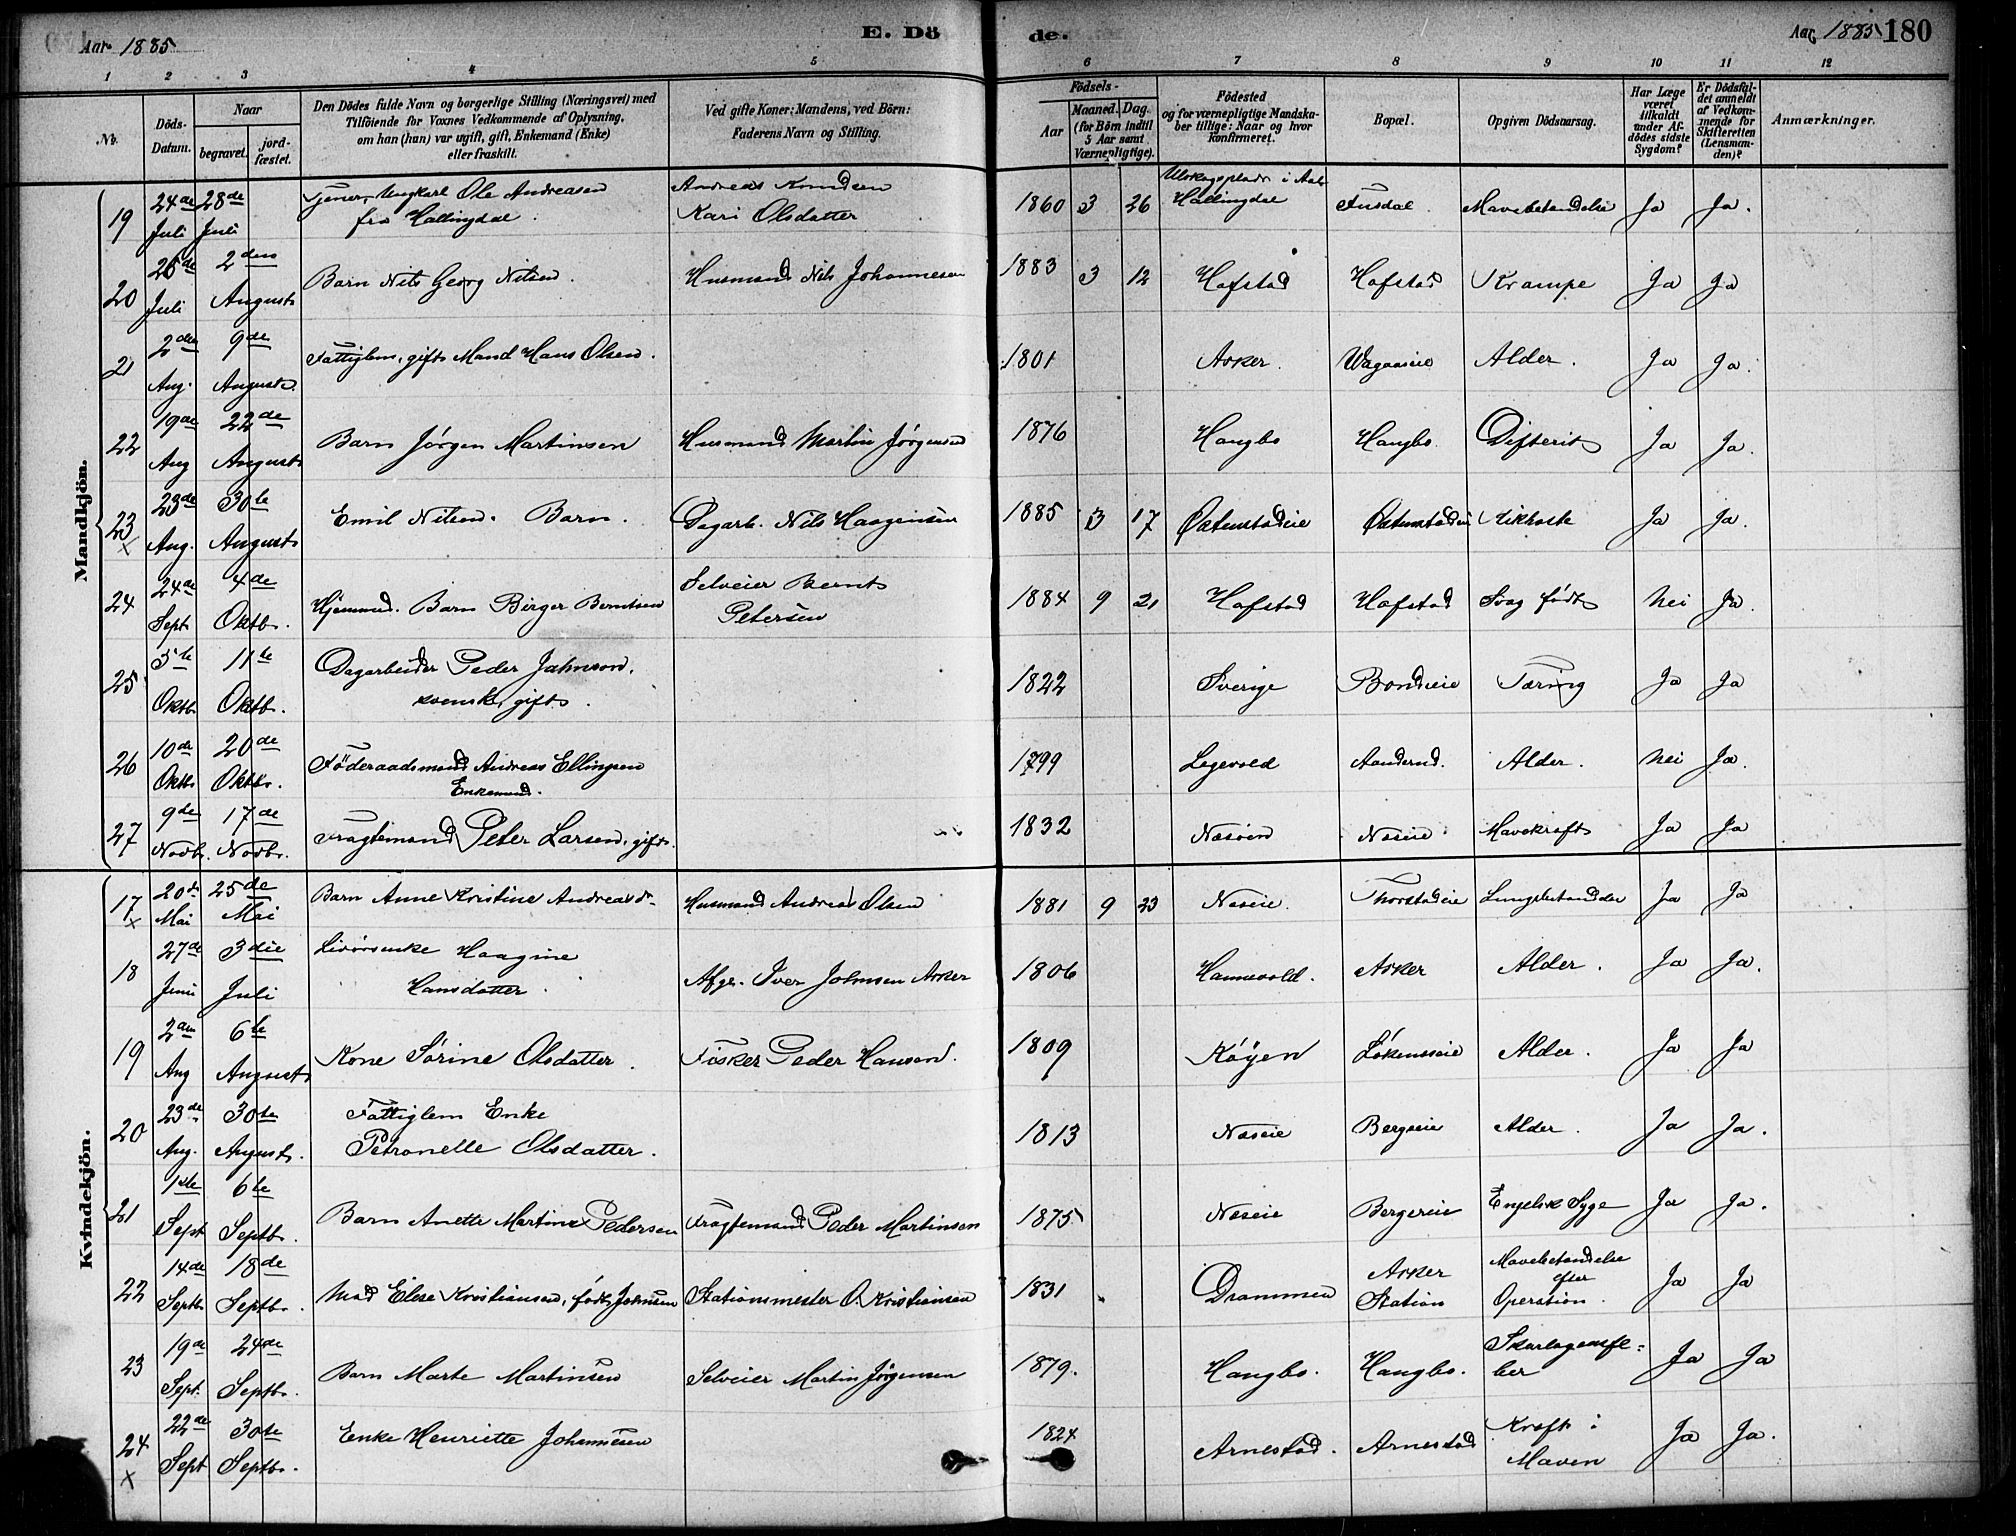 Aar 1885
E. Dö
de.
Aar 1885 180
1 2 3 4 5 6 7 8 9 10 11 12
No.
Döds-Datum.
Naar
begravet.
jordfæstet.
Den Dödes fulde Navn og borgerlige Stilling (Næringsvei) med
Tilföiende for Voxnes Vedkommende af Oplysning,
om han (hun) var ugift, gift, Enkemand (Enke)
eller fraskilt.
Ved gifte Koner: Mandens, ved Börn:
Faderens Navn og Stilling.
Födsels-
Aar
Maaned. Dag.
(for Börn indtil
5 Aar samt
Værnepligtige).
Födested
og for værnepligtige Mandskaber tillige: Naar og hvor
konfirmeret.
Bopæl.
Opgiven Dödsaarsag.
Har Læge
været
tilkaldt
under Afdödes sidste
Sygdom?
Er Dödsfaldet anmeldt
af Vedkommende for
Skifteretten
(Lensmanden)?
Anmærkninger.
Mandkjön.
19 24de Juli 28de Juli Tjener, Ungkarl Ole Andreasen fra Hallingdal. Andreas Knudsen Kari Olsdatter 1860 3 26 i Aal Hallingdal Fusdal Mavebetændelse Ja Ja.
20 26de Juli 2den August Barn Nils Georg Nilsen. Husmand Nils Johannesen 1883 3 12 Hofstad Hofstad Krampe Ja Ja
21 2den Aug. 9de August. Fattiglem, gift Mand Hans Olsen. 1801 Asker. Alder. Ja Ja.
22 19de Aug 22de August Barn Jörgen Martinsen Husmand Martin Jörgensen 1876 Haugbo Haugbo. Difterit Ja Ja.
23 x 23de Aug. 30te August Emil Nilsen. Barn. Dagarb. Nils Haagensen 1885 3 17 Østenstadeie Østenstadeie Kikhoste Ja Ja.
24 24de Sept 4de Oktb. Hjemmed. Barn Birger Berntsen Selveier Bernt Petersen 1884 9 21 Hofstad Hofstad Svag født Nei Ja.
25 5te Oktb. 11te Oktb. Dagarbeider Peder Jahnson, svensk, gift. 1822 Sverige Bondieie Tæring Ja Ja
26 10de Oktb 20de Oktb. Föderaadsmand Andreas Ellingsen Enkemand. 1799 Aanderud. Alder. Nei Ja.
27 9de Novb. 17de Novb. Fragtemand Peter Larsen, gift. 1832 Næsöen Næseie Mavekræft Ja Ja
Kvindekjön.
17 x 20de Mai 25de Mai Barn Anne Kristine Andreasd. Husmand Andreas Olsen 1881 9 23 Næseie. Thorstadeie Lungebetændelse Ja Ja
18 27de Juni 3die Juli Haagine Hansdatter. Afg. Iver Johnsen Asker 1806 Hannevold. Asker Alder. Ja Ja.
19 2den Aug 6te August Kone Sörine Olsdatter. Fisker Peder Hansen. 1809 Röyen Løkenseie Alder. Ja Ja
20 23de Aug. 30te August. Fattiglem Enke Petronelle Olsdatter. 1813 Næseie Bergseie Alder. Ja Ja.
21 1ste Sept 6te Septb. Barn Anette Martine Pedersen Fragtemand Peder Martinsen 1875 Næseie Bergereie Engelsk Syge Ja Ja.
22 14de Septb 18de Septb. Mad Elise Kristiansen, født Johnsen Stationsmester O. Kristiansen 1831 Drammen Asker Station Mavebetændelse efter Operation. Ja Ja
23 19de Sept. 24de Septb. Barn Marte Martinsen Selveier Martin Jørgensen 1879. Haugbo. Haugbo. Skarlagensfeber Ja Ja
24 x 22de Sept 30te Septb. Enke Henriette Johannesen 1824 Arnestad. Arnestad Kræft i Maven Ja Ja.